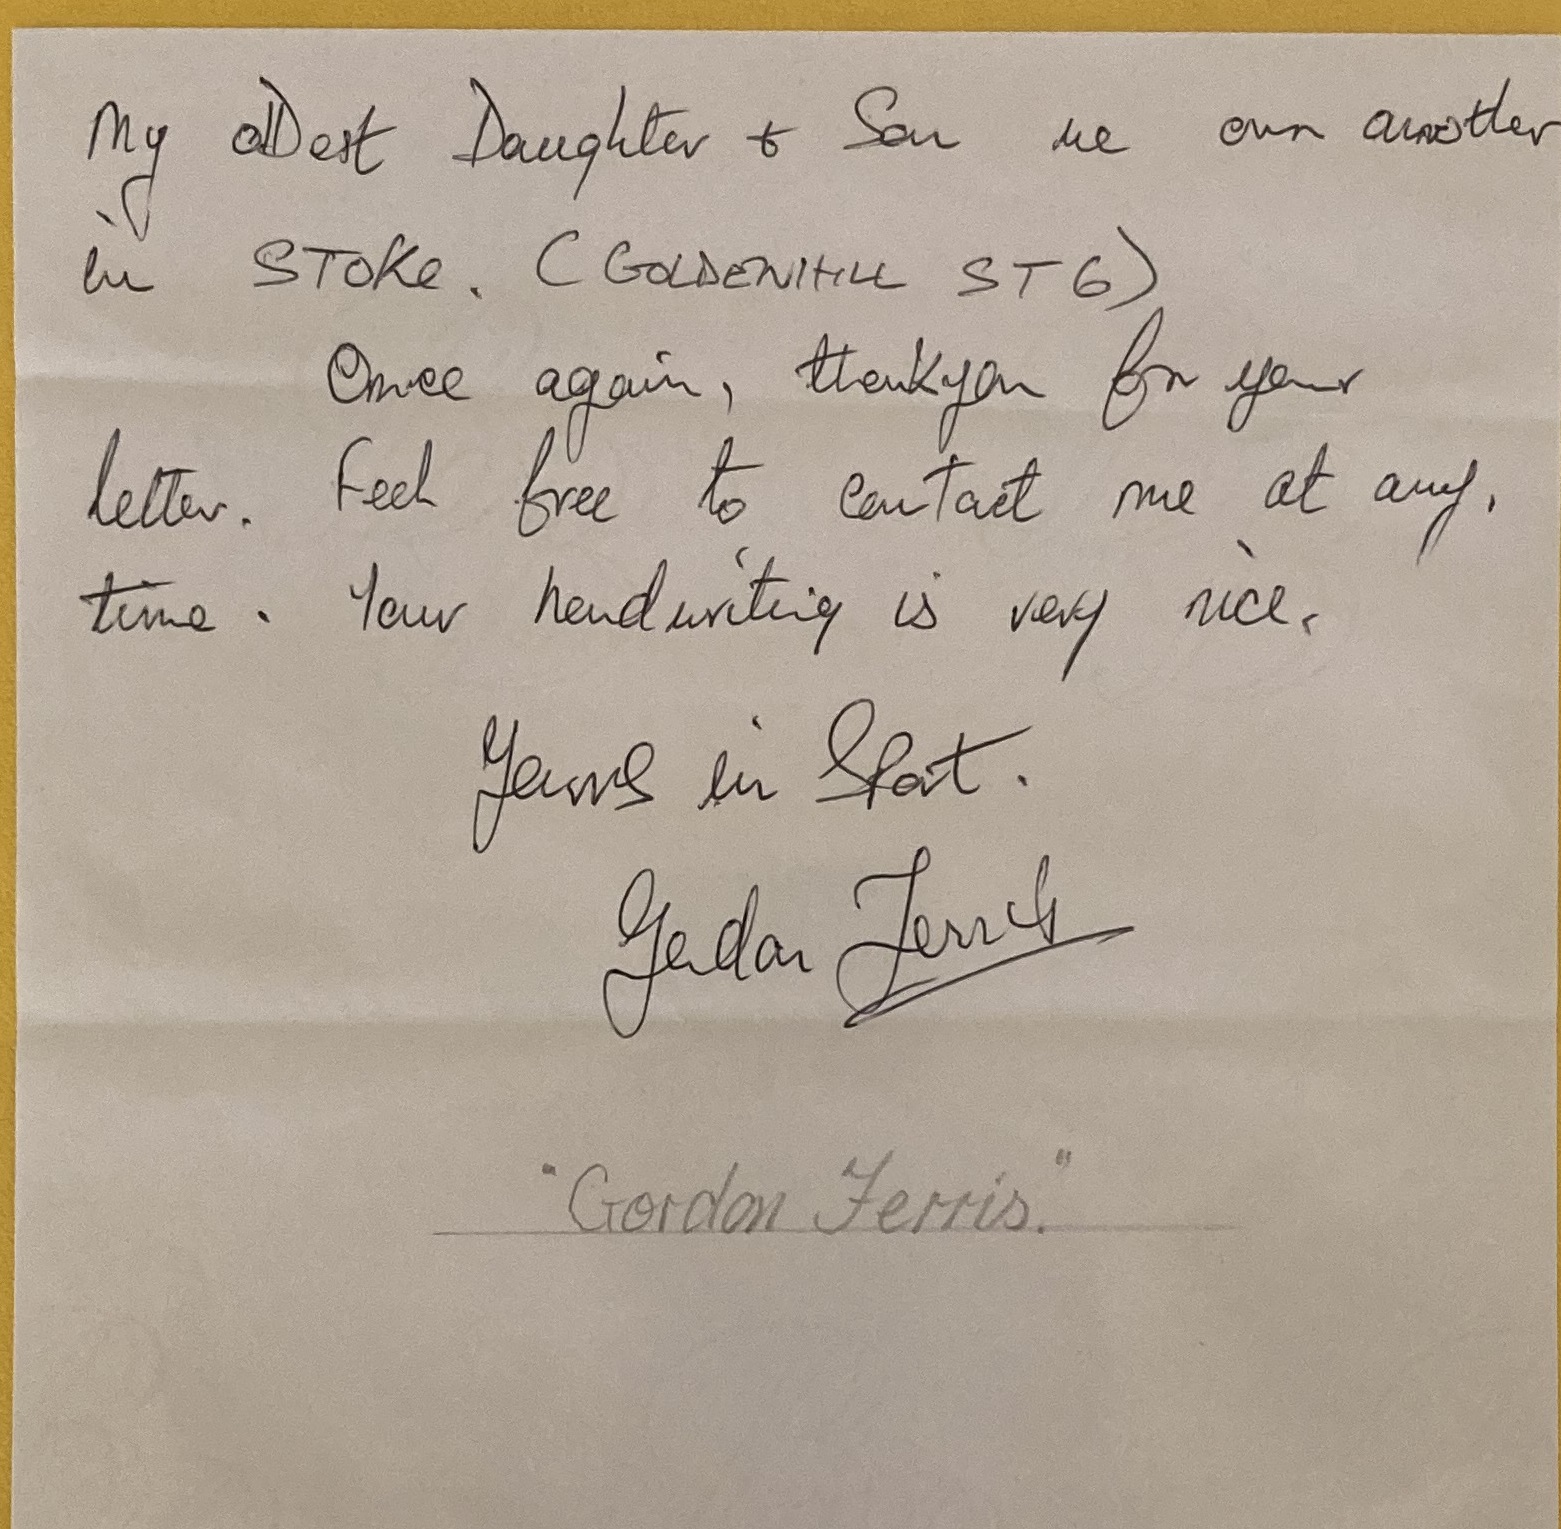 My oldest Daughter & Son we own another
in STOKE. (GOLDENHILL ST6)
Once again, thankyou for your
letter. Feel free to contact me at any.
time. Your handwriting is very nice.
Yours in Sport.
Gordon Ferris
"Gordon Ferris."